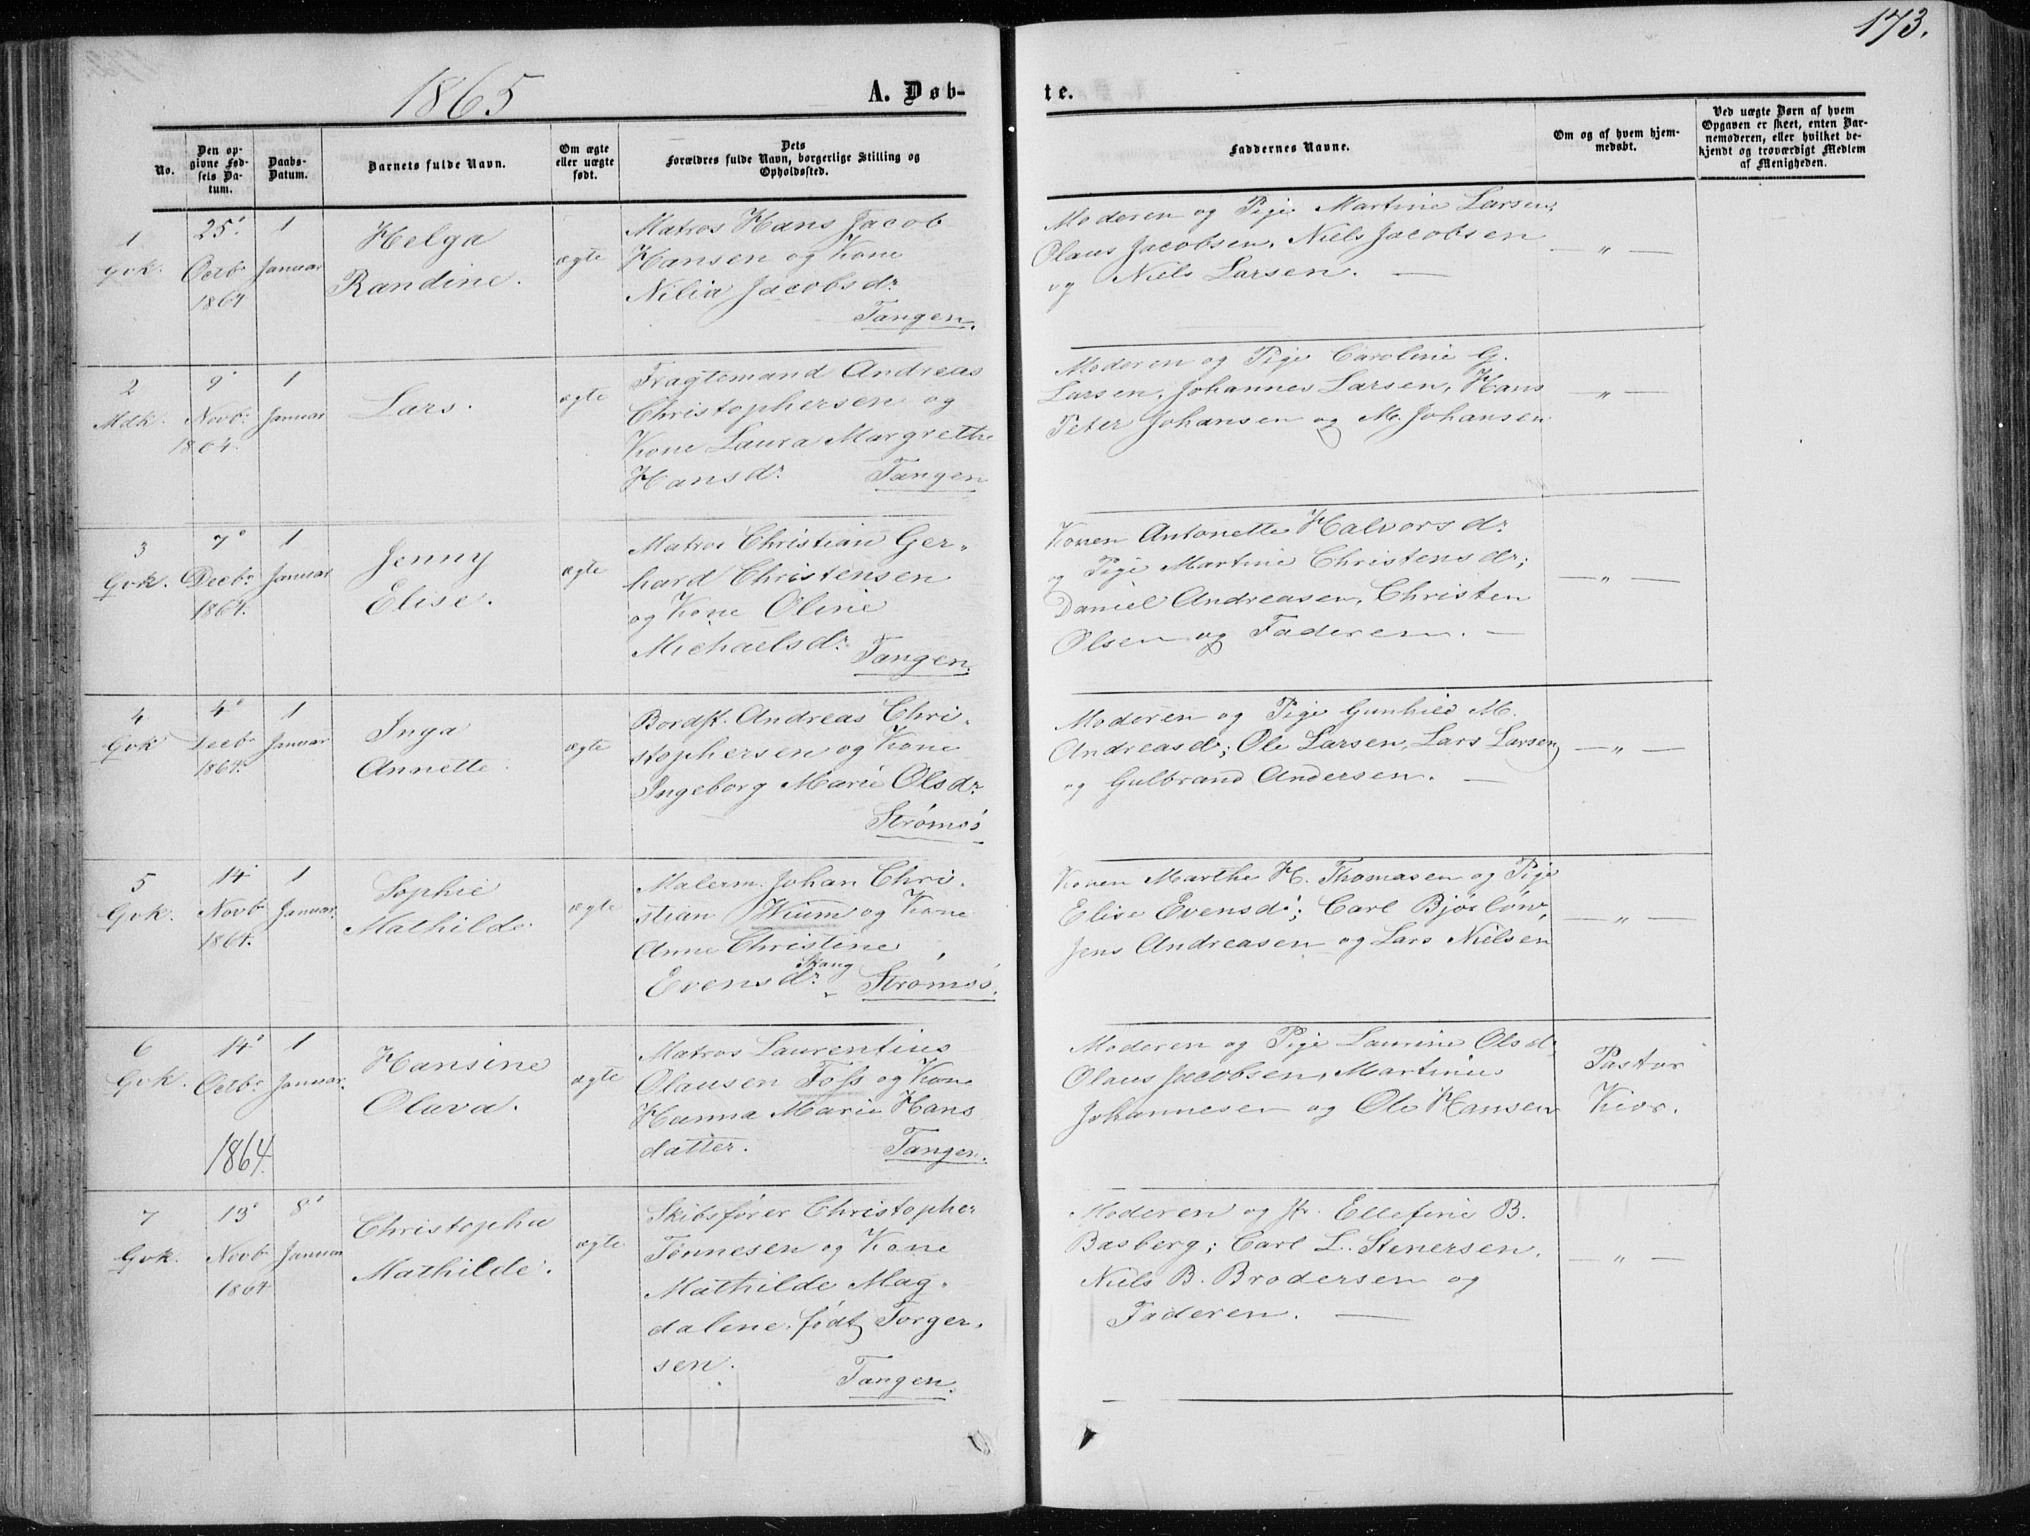 173.
1865
A. Døb-
te.
No.
Den op-
givne Fød-
sels Da-
tum.
Daabs-
Datum.
Barnets fulde Navn.
Om ægte
eller uægte
født.
Dets
Forældres fulde Navn, borgerlige Stilling og
Opholdssted.
Faddernes Navne.
Om og af hvem hjem-
medøbt.
Ved uægte Børn af hvem
Opgaven er skeet, enten Bar-
nemoderen, eller hvilket be-
kjendt og troværdigt Medlem
af Menigheden.
1
Qvk.
25'
Octbr
1864
1
Januar
Helga
Randine.
ægte
Matros Hans Jacob
Hansen og Kone
Nilia Jacobsdr
Tangen.
Moderen og Pige Martine Larsen;
Olaus Jacobsen, Niels Jacobsen
og Niels Larsen. —
— „ —
2
Mdk.
9'
Novbr
1864.
1
Januar
Lars.
ægte
Fragtemand Andreas
Christophersen og
Kone Laura Margrethe
Hansdr
Tangen
Moderen og Pige Caroline G.
Larsen, Johannes Larsen, Hans
Peter Johansen og M. Johansen
— „ —
3
Qvk.
7'
Decbr
1864.
1
Januar
Jenny
Elise.
ægte
Matros Christian Ger-
hard Christensen
og Kone Oline
Michaelsdr
Tangen.
Konen Antonette Halvorsdr
og Pige Martine Christensdr;
Daniel Andreasen, Christen
Olsen og Faderen. —
— „ —
4
Qvk
4'
Decbr
1864.
1
Januar
Inga
Annette.
ægte
Bordst. Andreas Chri-
stophersen og Kone
Ingeborg Marie Olsdr
Strømsö
Moderen og Pige Gunhild M.
Andreasd; Ole Larsen, Lars Larsen
og Gulbrand Andersen. —
— „ —
5
Qvk.
14'
Novbr
1864.
1
Januar.
Sophie
Mathilde.
ægte
Malerm. Johan Chri-
stian Wium og Kone
Anne Christine
Evensdr Skaug
Strømsö.
Konen Marthe H. Thomasen og Pige
Elise Evensd; Carl Bjørlöw,
Jens Andreasen og Lars Nielsen
— „ —
6
Qvk.
14'
Octbr
1864.
1
Januar.
Hansine
Olava.
ægte
Matros Laurentius
Olausen Foss og Kone
Hanna Marie Hans
datter.
Tangen.
Moderen og Pige Laurine Olsd
Olaus Jacobsen, Martinius
Johannesen og Ole Hansen
Pastor
Kior.
7
Qvk.
13'
Novb
1864
8'
Januar
Christopha
Mathilde.
ægte
Skibsfører Christopher
Tönnesen og Kone
Mathilde Mag-
dalene født Torger-
sen.
Tangen.
Moderen og Jfr. Ellefine B.
Basberg; Carl L. Stenersen,
Niels B. Brodersen og
Faderen. —
— „ —